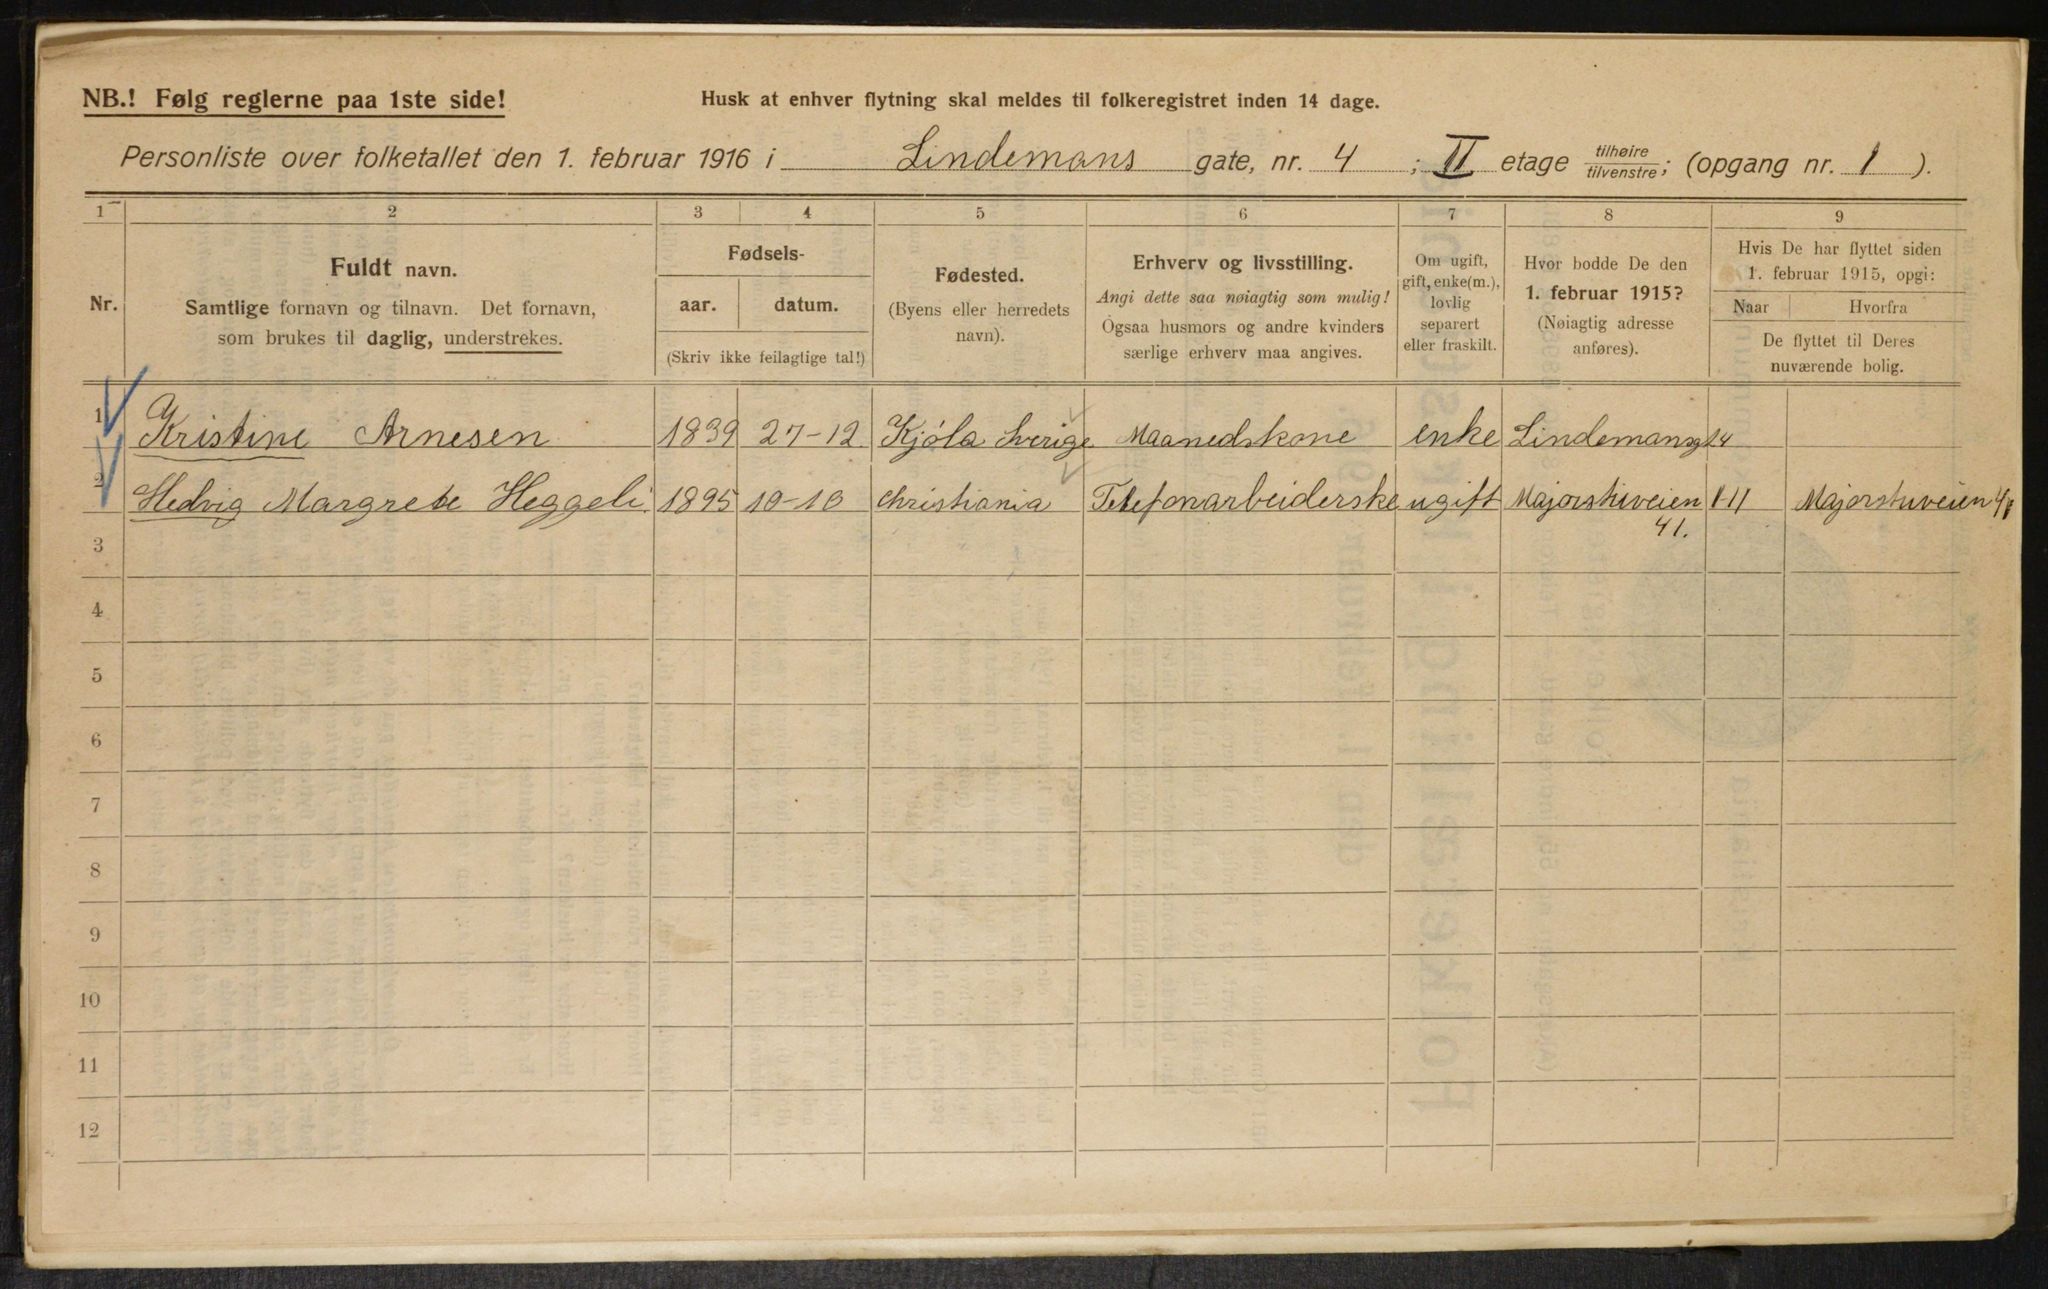 NB.! Følg reglerne paa 1ste side!
Husk at enhver flytning skal meldes til folkeregistret inden 14 dage.
Personliste over folketallet den 1. februar 1916 i Lindemans gate, nr. 4 ; II etage tilhøire/tilvenstre; (opgang nr. 1 ).
1 2 3 4 5 6 7 8 9
Nr.
Fuldt navn.
Samtlige fornavn og tilnavn. Det fornavn,
som brukes til daglig, understrekes.
Fødsels-
aar. datum.
(Skriv ikke feilagtige tal!)
Fødested.
(Byens eller herredets
navn).
Erhverv og livsstilling.
Angi dette saa nøiagtig som mulig!
Ogsaa husmors og andre kvinders
særlige erhverv maa angives.
Om ugift,
gift, enke(m.),
lovlig
separert
eller fraskilt.
Hvor bodde De den
1. februar 1915?
(Nøiagtig adresse
anføres).
Hvis De har flyttet siden
1. februar 1915, opgi:
Naar Hvorfra
De flyttet til Deres
nuværende bolig.
1 Kristine Arnesen 1839 27-12 Kjöla Sverige Maanedskone enke Lindemansg
2 Hedvig Margrete Heggeli 1895 10-10 Christiania Telefonarbeiderske ugift Majorstuveien 1-11 Majorstuveien 41
41.
3
4
5
6
7
8
9
10
11
12